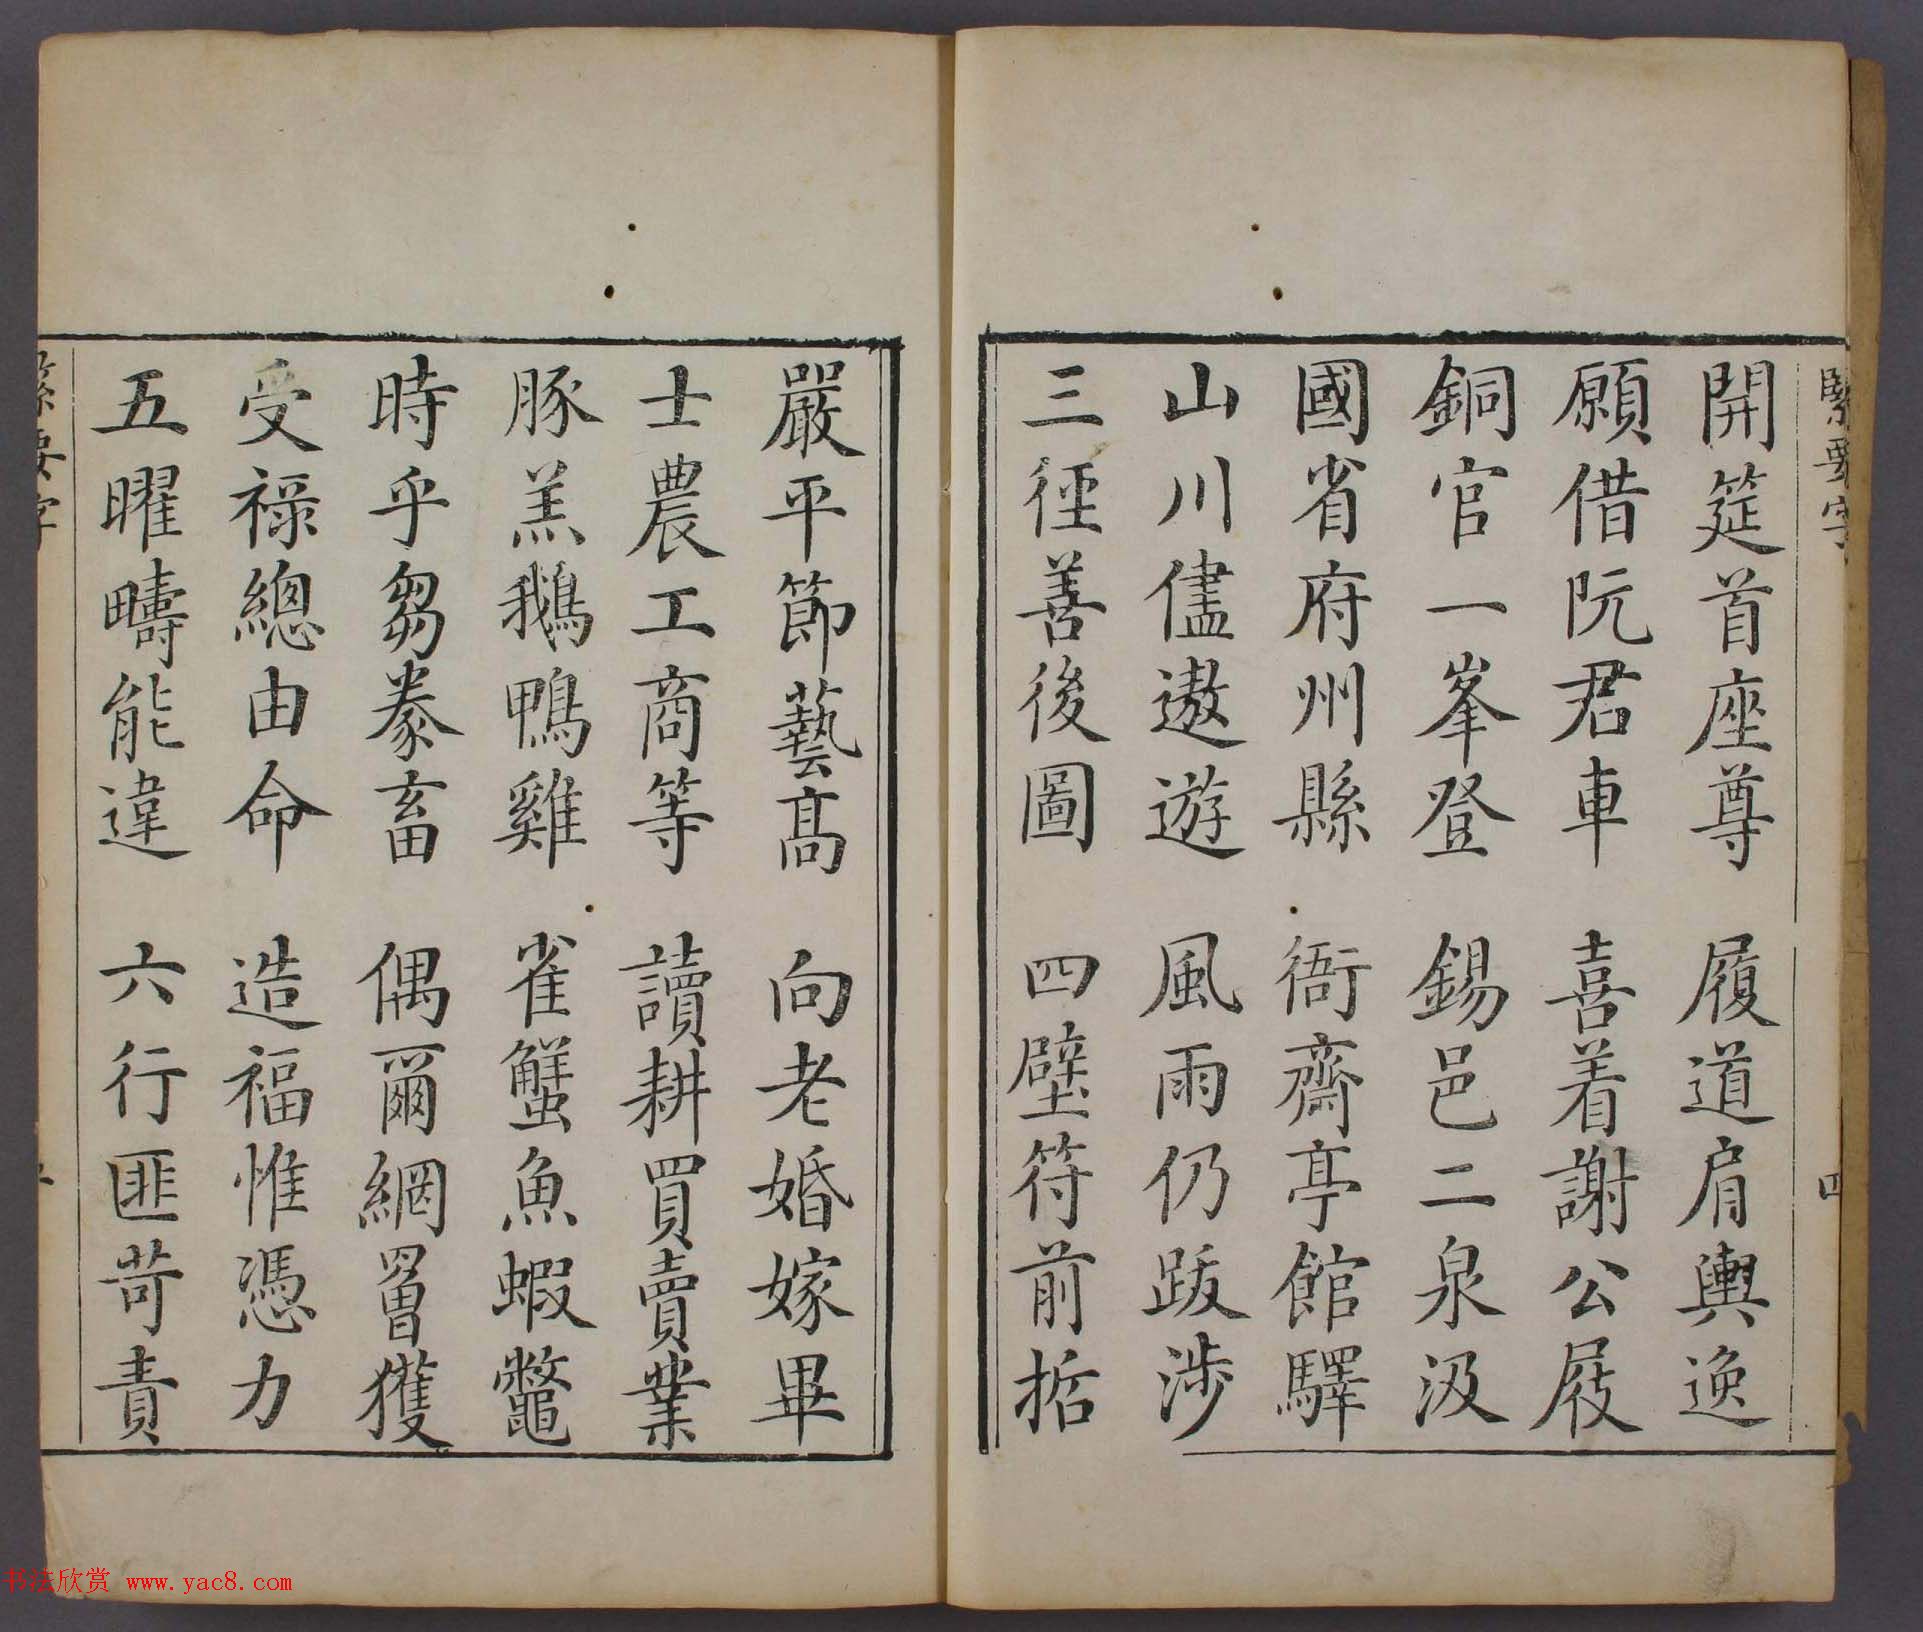 緊要字 四
開筵首座尊 履道肩輿逸
願借阮君車 喜着謝公屐
銅官一峯登 錫邑二泉汲
國省府州縣 衙齋亭館驛
山川儘遨遊 風雨仍跋涉
三徑善後圖 四壁符前哲
嚴平節藝高 向老婚嫁畢
士農工商等 讀耕買賣業
豚羔鵝鴨雞 雀蟹魚蝦鼈
時乎芻豢畜 偶爾網罾獲
受祿總由命 造福惟憑力
五曜疇能違 六行匪苛責
緊要字
书法欣赏 www.yac8.com